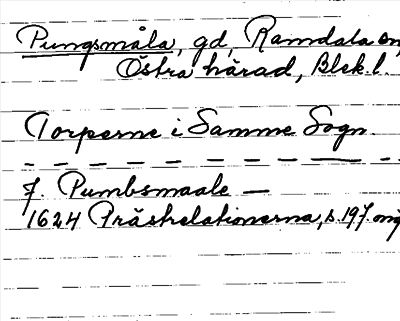 Pungsmåla, gd, Ramdala sn,
Östra härad, Blek. l.
Torperne i Samme Sogn.
7. Pumbsmaale —
1624 Prästrelationerna, s. 197.